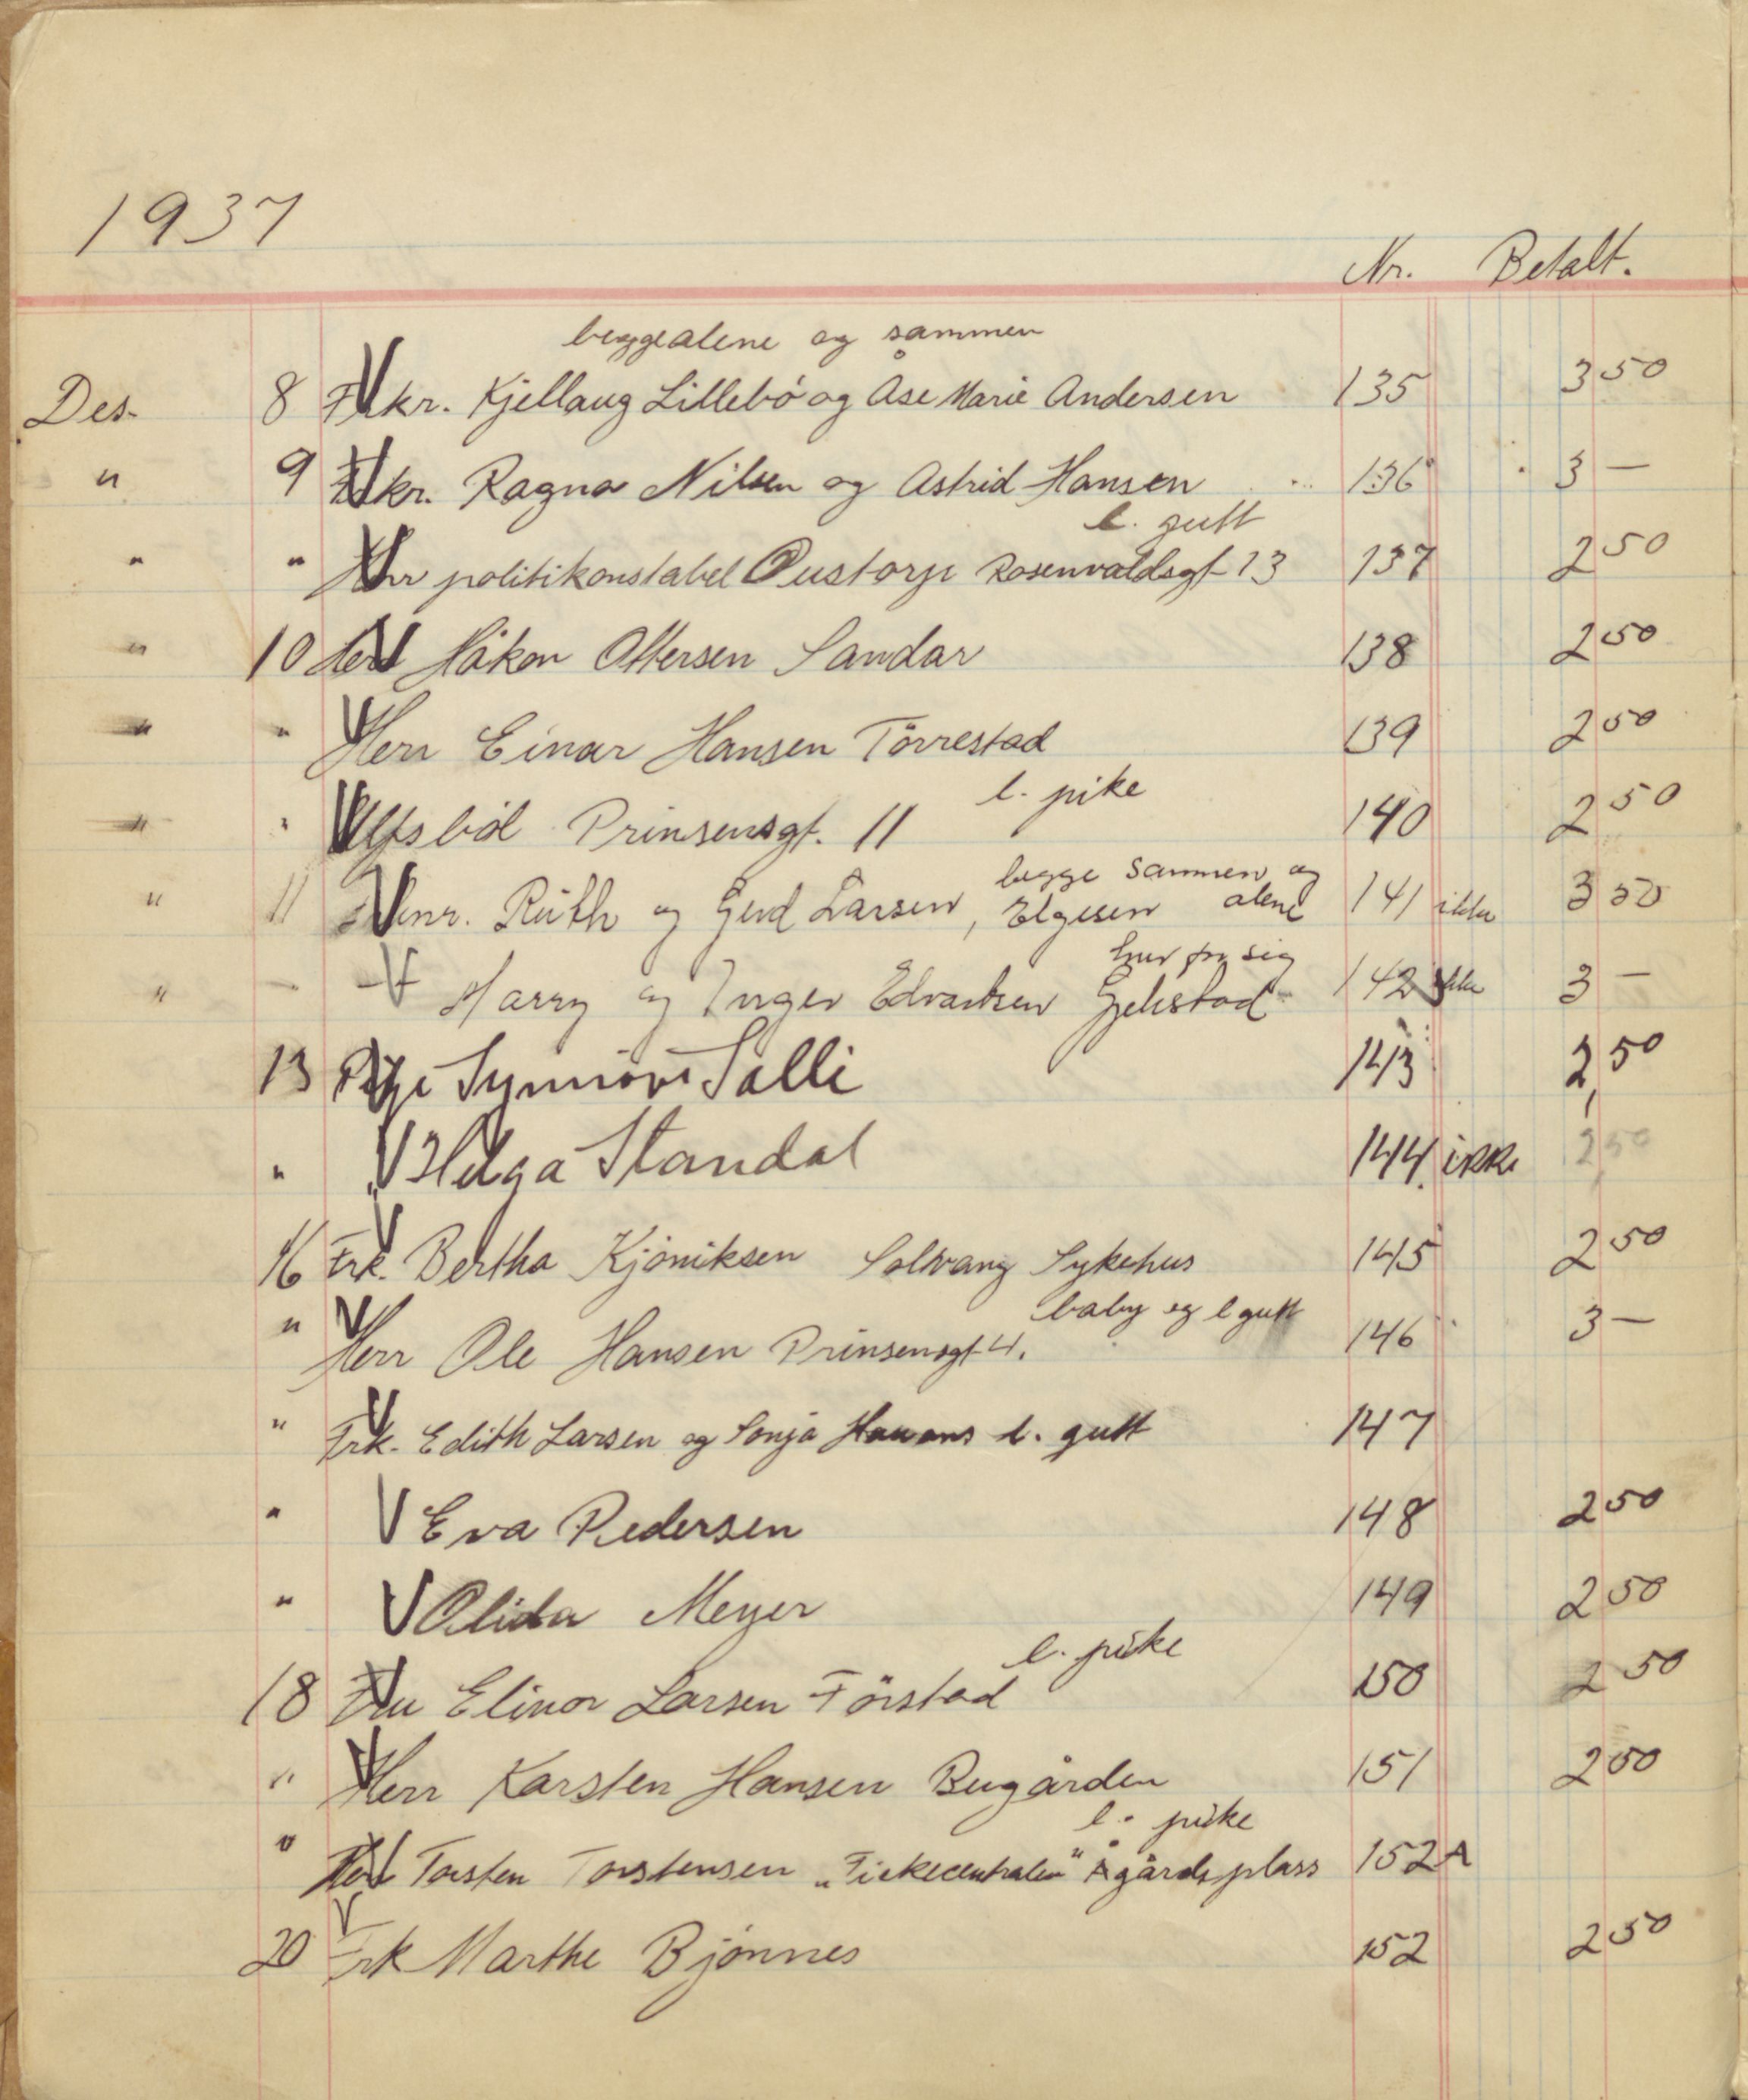 1937
Nr. Betalt.
begge alene og sammen
Des. 8 Frkr. Kjellaug Lillebö og Åse Marie Andersen 135 3 50
" 9 Frkr. Ragna Nilsen og Astrid Hansen 136 3 —
l. gutt
" " Herr politikonstabel Rosenvoldsgt 13 137 2 50
" 10 Herr Håkon Ottersen Sandar 138 2 50
" " Herr Einar Hansen Törrestad 139 2 50
l. pike
" " Prinsensgt. 11 140 2 50
begge sammen og
" 11 Ruth og Gerd Larsen, Elgesem alene 141 ikke 3 50
hver for sig
" — Harry og Inger Edvardsen Gjekstad 142 ikke 3 —
13 Synnöve Salli 143 2,50
" Helga Standal 144. ikke 2,50
16 Frk. Bertha Kjöniksen Solvang Sykehus 145 2 50
baby og l gutt
" Herr Ole Hansen Prinsensgt 4. 146 3 —
" Frk. Edith Larsen og Sonja l. gutt 147
" Eva Pedersen 148 2 50
" Olida Meyer 149 2 50
l. pike
18 Fru Elinor Larsen Förstad 150 2 50
" Herr Karsten Hansen Bugården 151 2 50
l. pike
" Herr Torsten Torstensen „Fiskecentralen" Ågårdsplass 152 A
20 Frk Marthe Bjönnes 152 2 50